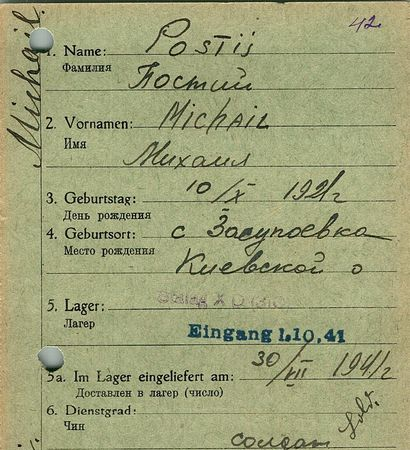 42
Michail.
1. Name: Postij
Фамилия
Постий
2. Vornamen: Michail
Имя
Михаил
3. Geburtstag: 10/X 1921г
День рождения
4. Geburtsort: с Засупоевка
Место рождения
Киевской о
5. Lager: Stalag X D (310)
Лагерь
Eingang 1.10.41
5a. Im Lager eingeliefert am: 30/VII 1941г
Доставлен в лагерь (число)
6. Dienstgrad: Sold.
Чин
солдат